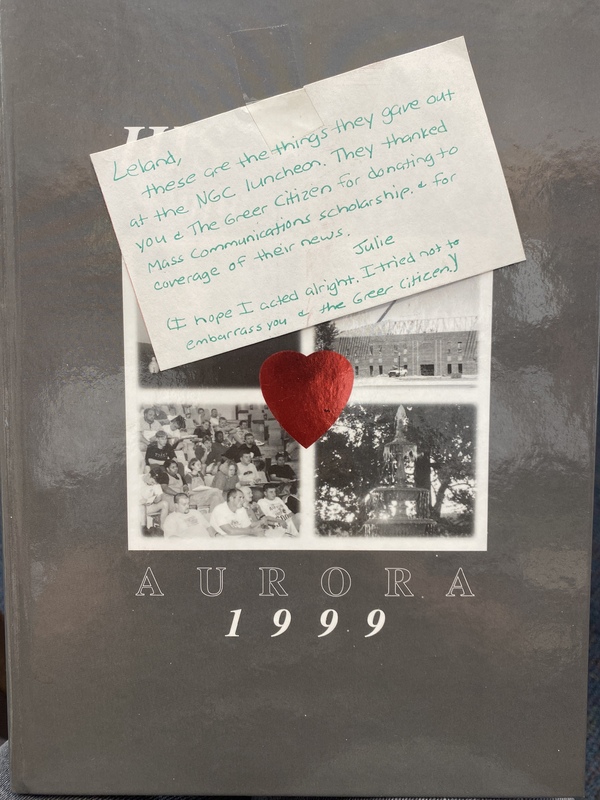 Leland,
these are the things they gave out
at the NGC luncheon. They thanked
you & The Greer Citizen for donating to
Mass Communications scholarship. & for
coverage of their news.
Julie
(I hope I acted alright. I tried not to
embarrass you & the Greer Citizen.)
AURORA
1999